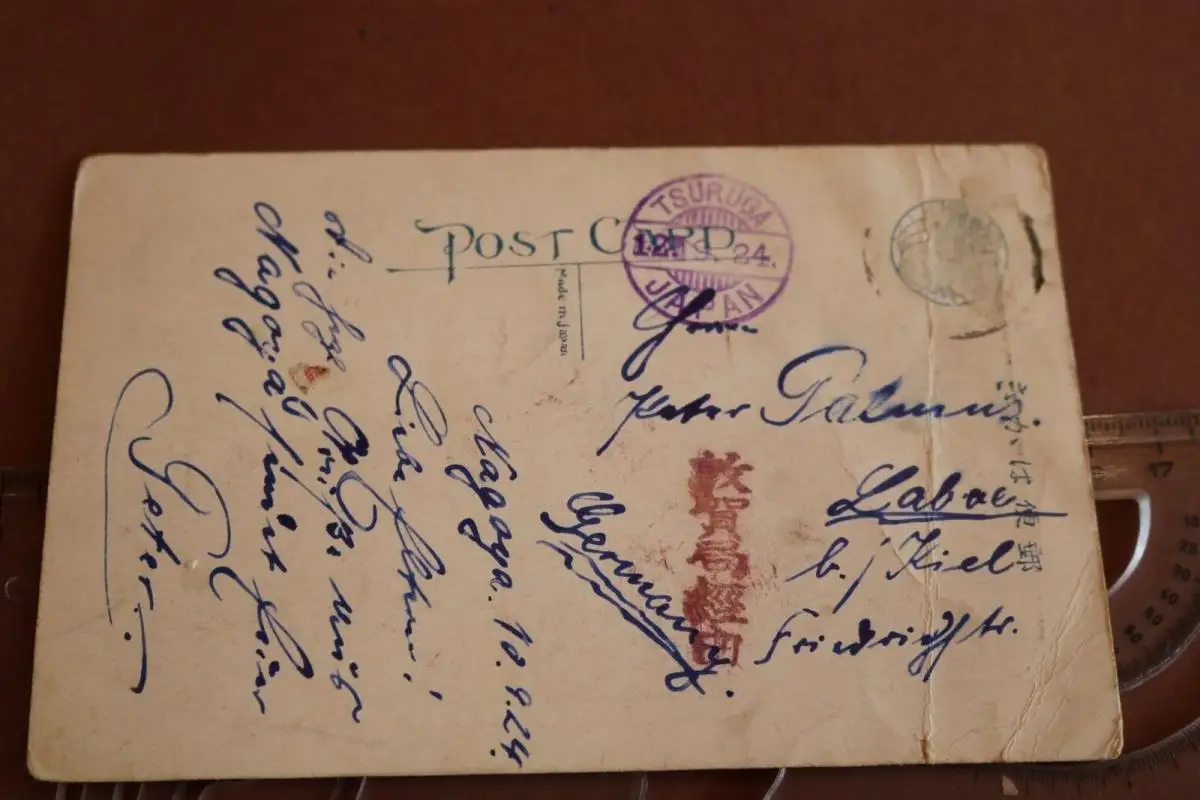 POST CARD
Made in Japan.
TSURUGA
12.9.24.
JAPAN
Herrn
Peter
Laboe
b./Kiel
Friedrichstr.
Germany.
敦賀局經由
郵便はかき
Nagoya. 10.9.24.
Liebe Eltern!
Grüße
Nagoya
Peter.